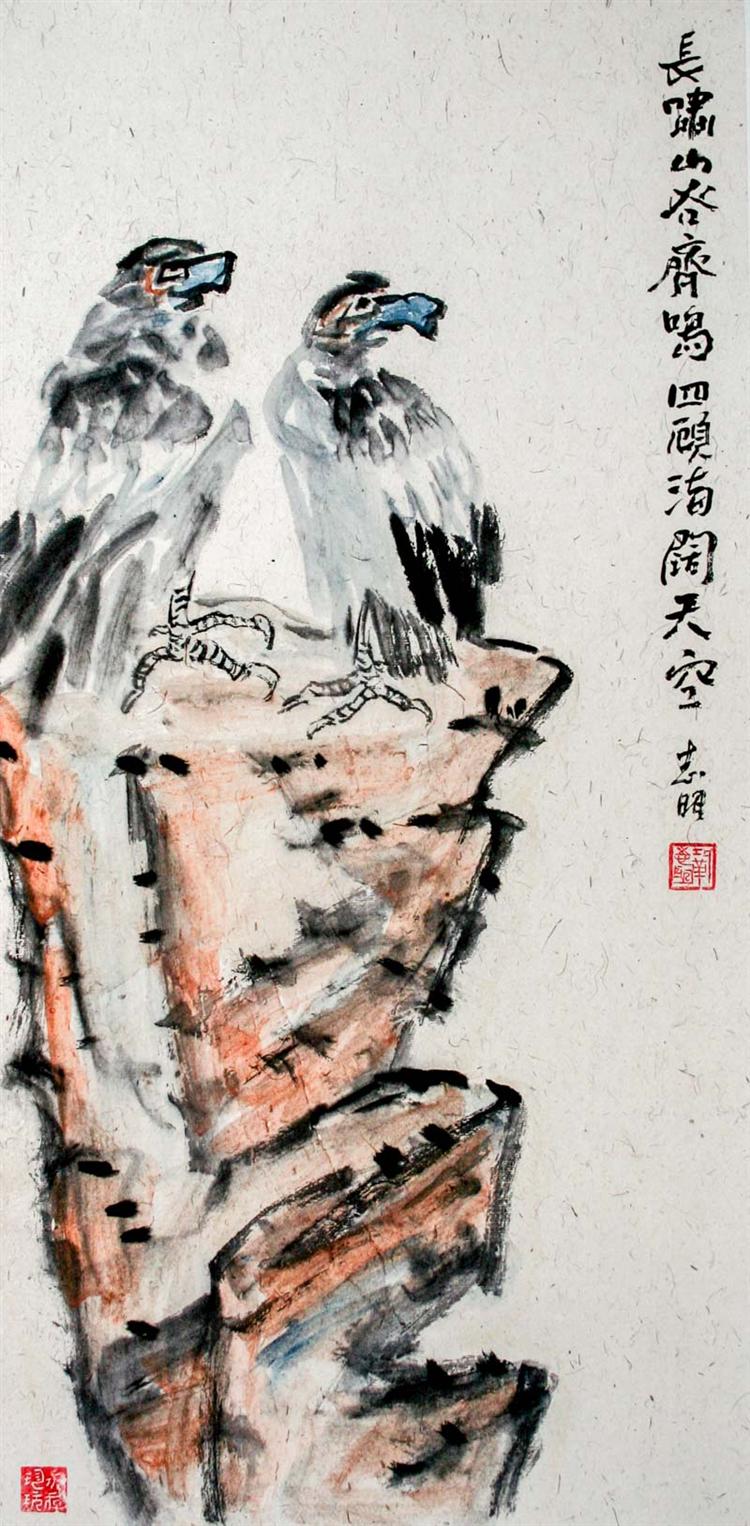 長嘯山谷齊鳴四顧海闊天空
志昭